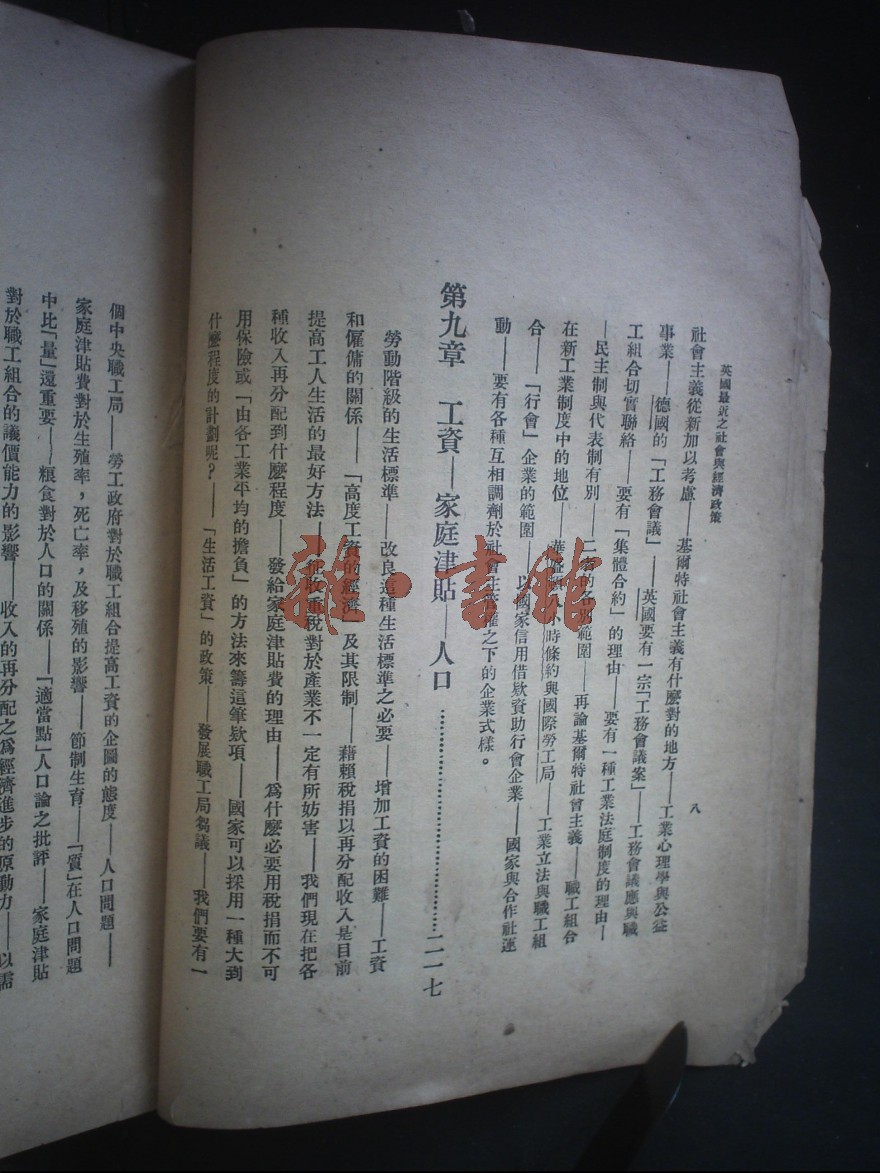 英國最近之社會與經濟政策
八
社會主義從新加以考慮——基爾特社會主義有什麽對的地方——工業心理學與公益
事業——德國的「工務會議」——英國要有一宗「工務會議案」——工務會議應與職
工組合切實聯絡——要有「集體合約」的理由——要有一種工業法庭制度的理由—
—民主制與代表制有別——二者的各別範圍——再論基爾特社會主義——職工組合
在新工業制度中的地位——華盛頓 小時條約與國際勞工局——工業立法與職工組
合——「行會」企業的範圍——以國家信用借欵資助行會企業——國家與合作社運
動——要有各種互相調劑於社會主 權之下的企業式樣。
第九章 工資—家庭津貼—人口………………二一七
勞動階級的生活標準——改良這種生活標準之必要——增加工資的困難——工資
和僱傭的關係——「高度工資的經濟」及其限制——藉賴稅捐以再分配收入是目前
提高工人生活的最好方法——征收重稅對於產業不一定有所妨害——我們現在把各
種收入再分配到什麽程度——發給家庭津貼費的理由——爲什麽必要用稅捐而不可
用保險或「由各工業平均的擔負」的方法來籌這筆欵項——國家可以採用一種大到
什麽程度的計劃呢？——「生活工資」的政策——發展職工局芻議——我們要有一
個中央職工局——勞工政府對於職工組合提高工資的企圖的態度——人口問題——
家庭津貼費對於生殖率，死亡率，及移殖的影響——節制生育——「質」在人口問題
中比「量」還重要——糧食對於人口的關係——「適當點」人口論之批評——家庭津貼
對於職工組合的議價能力的影響——收入的再分配之爲經濟進步的原動力——以需
雜·書館